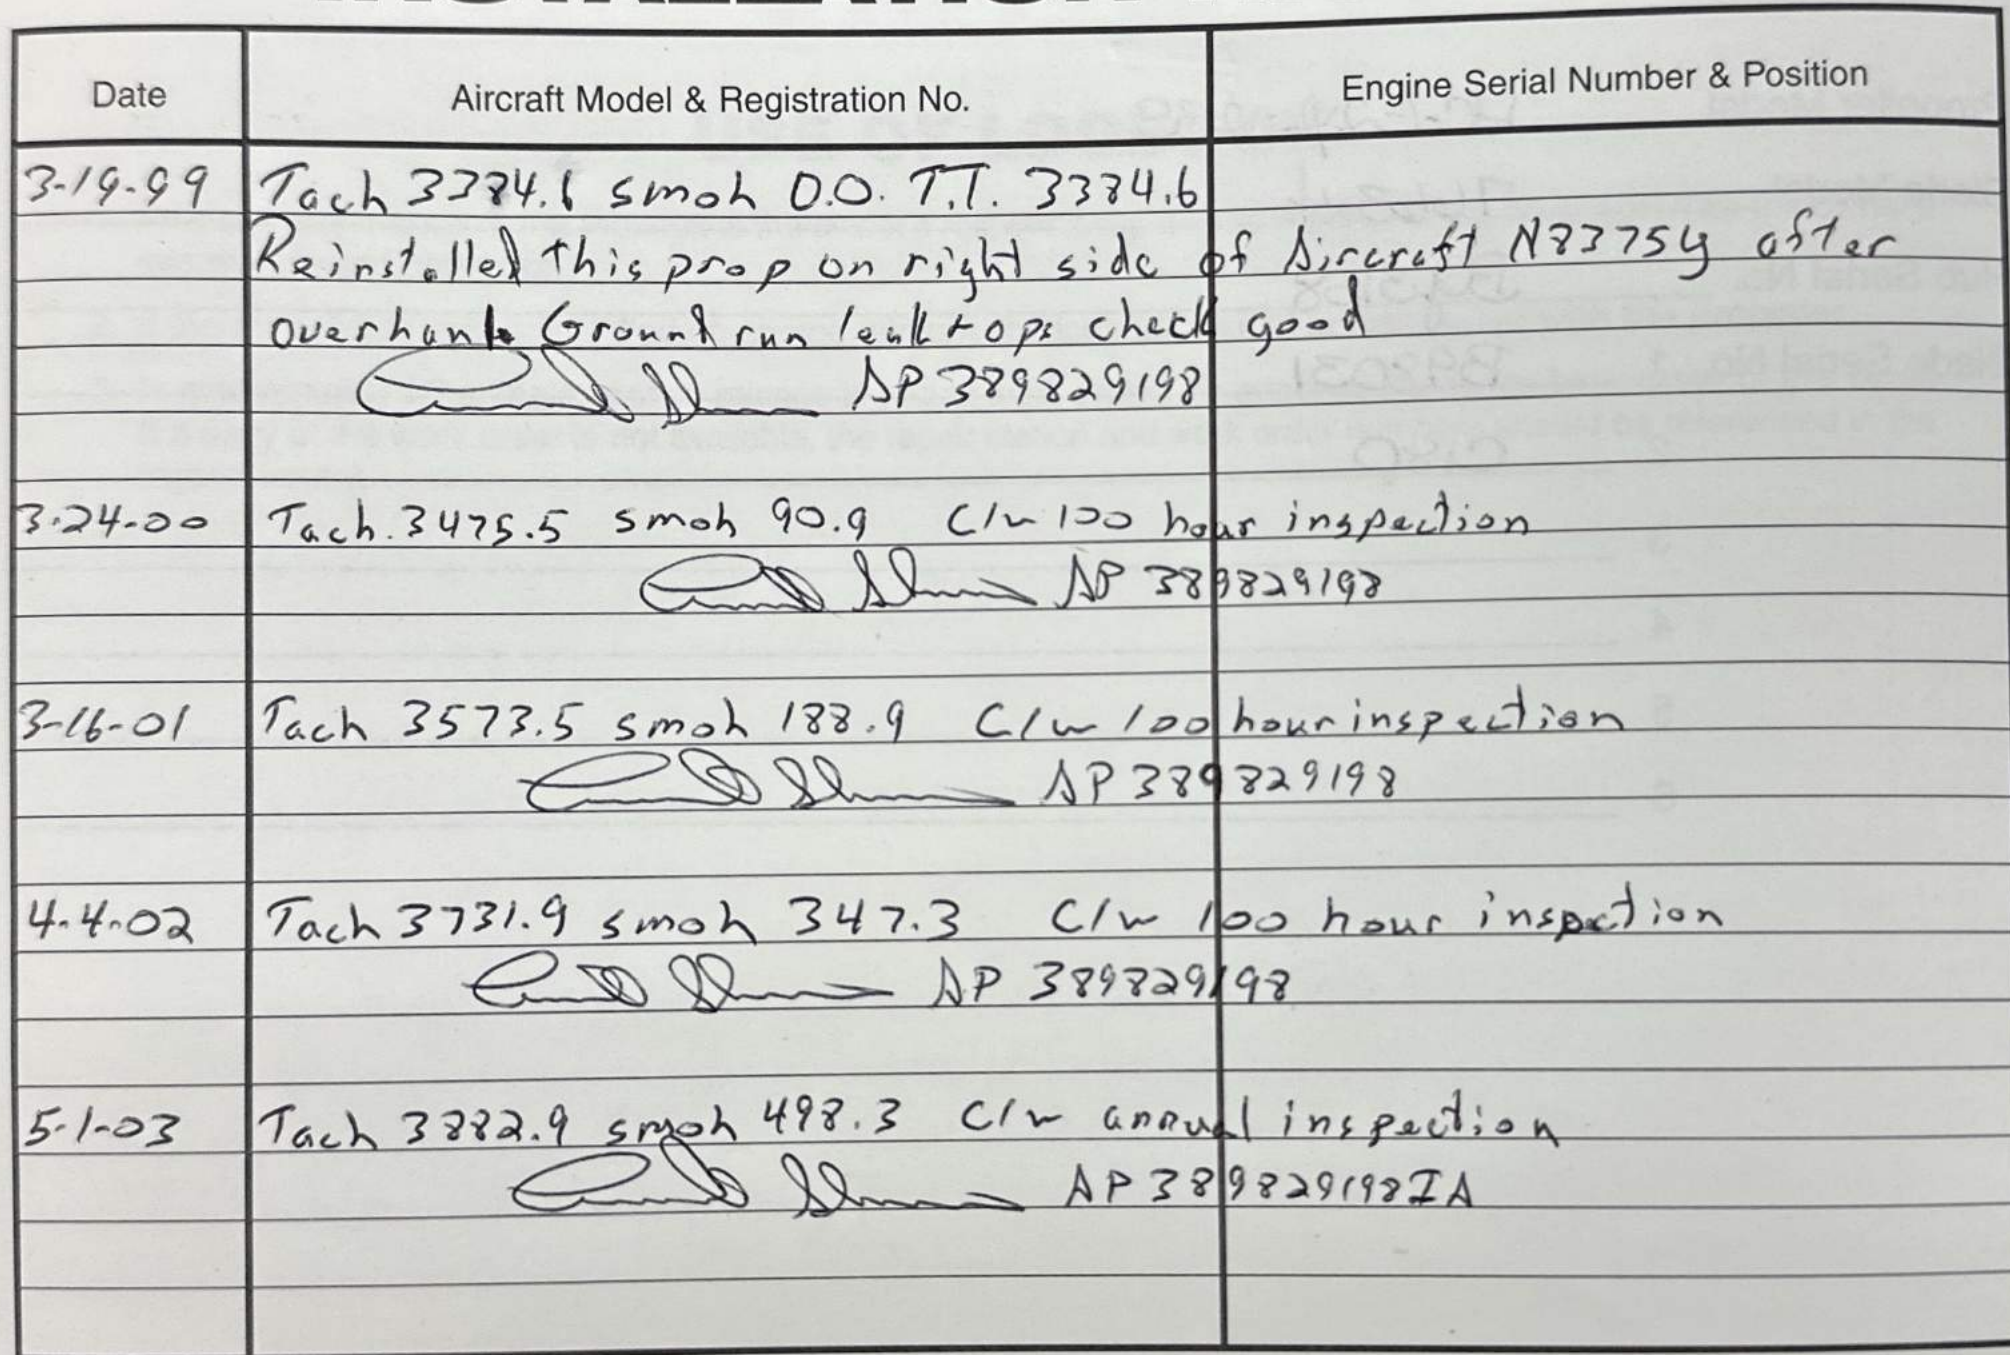 Date Aircraft Model & Registration No. Engine Serial Number & Position
3-19-99 Tach 3384.6 smoh 0.0. T.T. 3384.6
Reinstalled this prop on right side of Aircraft N8375Y after
overhaul. Ground run leak + ops check good
AP 389829198
3-24-00 Tach. 3475.5 smoh 90.9 C/w 100 hour inspection
AP 389829198
3-16-01 Tach 3573.5 smoh 188.9 C/w 100 hour inspection
AP 389829198
4-4-02 Tach 3731.9 smoh 347.3 C/w 100 hour inspection
AP 389829198
5-1-03 Tach 3882.9 smoh 498.3 C/w annual inspection
AP 389829198 IA